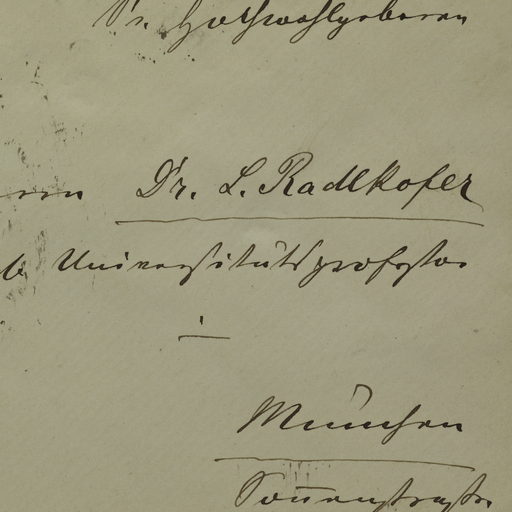 Sr. Hochwohlgeboren
Dr. L. Radlkofer
Universitätsprofessor
München
Sonnenstraße